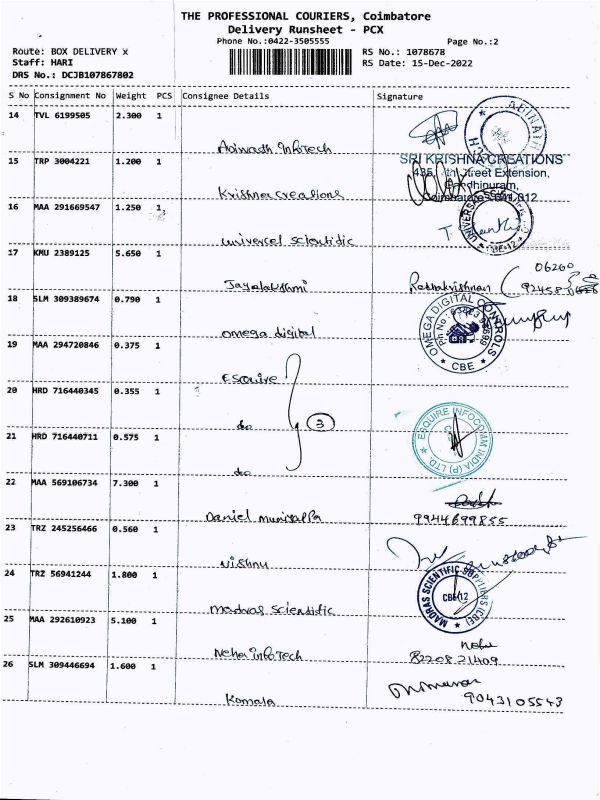 THE PROFESSIONAL COURIERS, Coimbatore
Delivery Runsheet - PCX
Phone No.:0422-3505555
Page No.:2
Route: BOX DELIVERY x
Staff: HARI
DRS No.: DCJB107867802
RS No.: 1078678
RS Date: 15-Dec-2022
S No Consignment No Weight PCS Consignee Details Signature
14 TVL 6199505 2.300 1
InfoTech
15 TRP 3004221 1.200 1
Krishna creations
SRI KRISHNA CREATIONS
Street Extension,
Gandhipuram,
16 MAA 291669547 1.250 1
universel scientific
17 KMU 2389125 5.650 1
Jayalakshmi
Radhakrishnan
06260
92458
18 SLM 309389674 0.790 1
omega digital
OMEGA DIGITAL CONTROLS
CBE
19 MAA 294720846 0.375 1
Esquire
20 HRD 716440345 0.355 1
do
3
21 HRD 716440711 0.575 1
do
ESQUIRE INFOCOMM INDIA (P) LTD.
22 MAA 569106734 7.300 1
Daniel muniyappa
9944699855
23 TRZ 245256466 0.560 1
Vishnu
24 TRZ 56941244 1.800 1
madras scientific
MADRAS SCIENTIFIC SUPPLIERS (CBE)
CBE-12
25 MAA 292610923 5.100 1
Neha infoTech
Neha
82208 21409
26 SLM 309446694 1.600 1
Kamala
9043105543